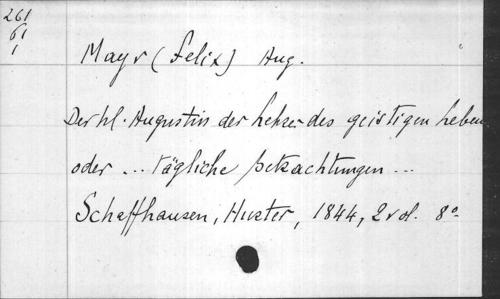 261
61
1
Mayr (Felix) Aug.
Der hl. Augustin der Lehrer des geistigen Leben
oder ... tägliche Betrachtungen ...
Schaffhausen, Hurter, 1844, 2 vol. 8°